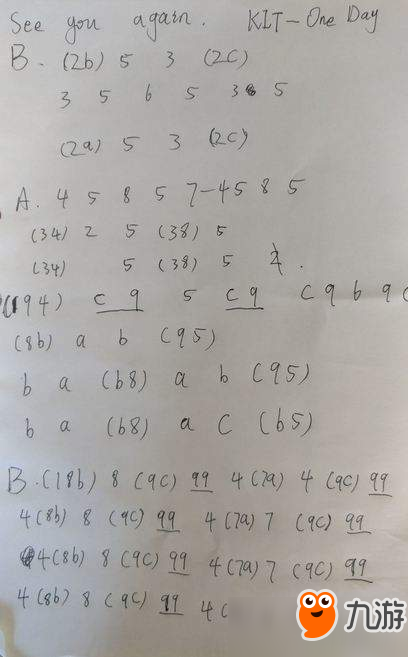 See you again. KIT-One Day
B. (2b) 5 3 (2C)
3 5 6 5 3 5
(2a) 5 3 (2C)
A. 4 5 8 5 7-45 8 5
(34) 2 5 (38) 5
(34) 5 (38) 5
(194) c9 5 c9 c9b9
(8b) a b (95)
b a (b8) a b (95)
b a (b8) a C (b5)
B.(18b) 8 (9c) 99 4(7a) 4 (9c) 99
4(8b) 8 (9c) 99 4(7a) 7 (9c) 99
4(8b) 8 (9c) 99 4(7a) 7 (9c) 99
4(8b) 8 (9c) 99 4(
九游